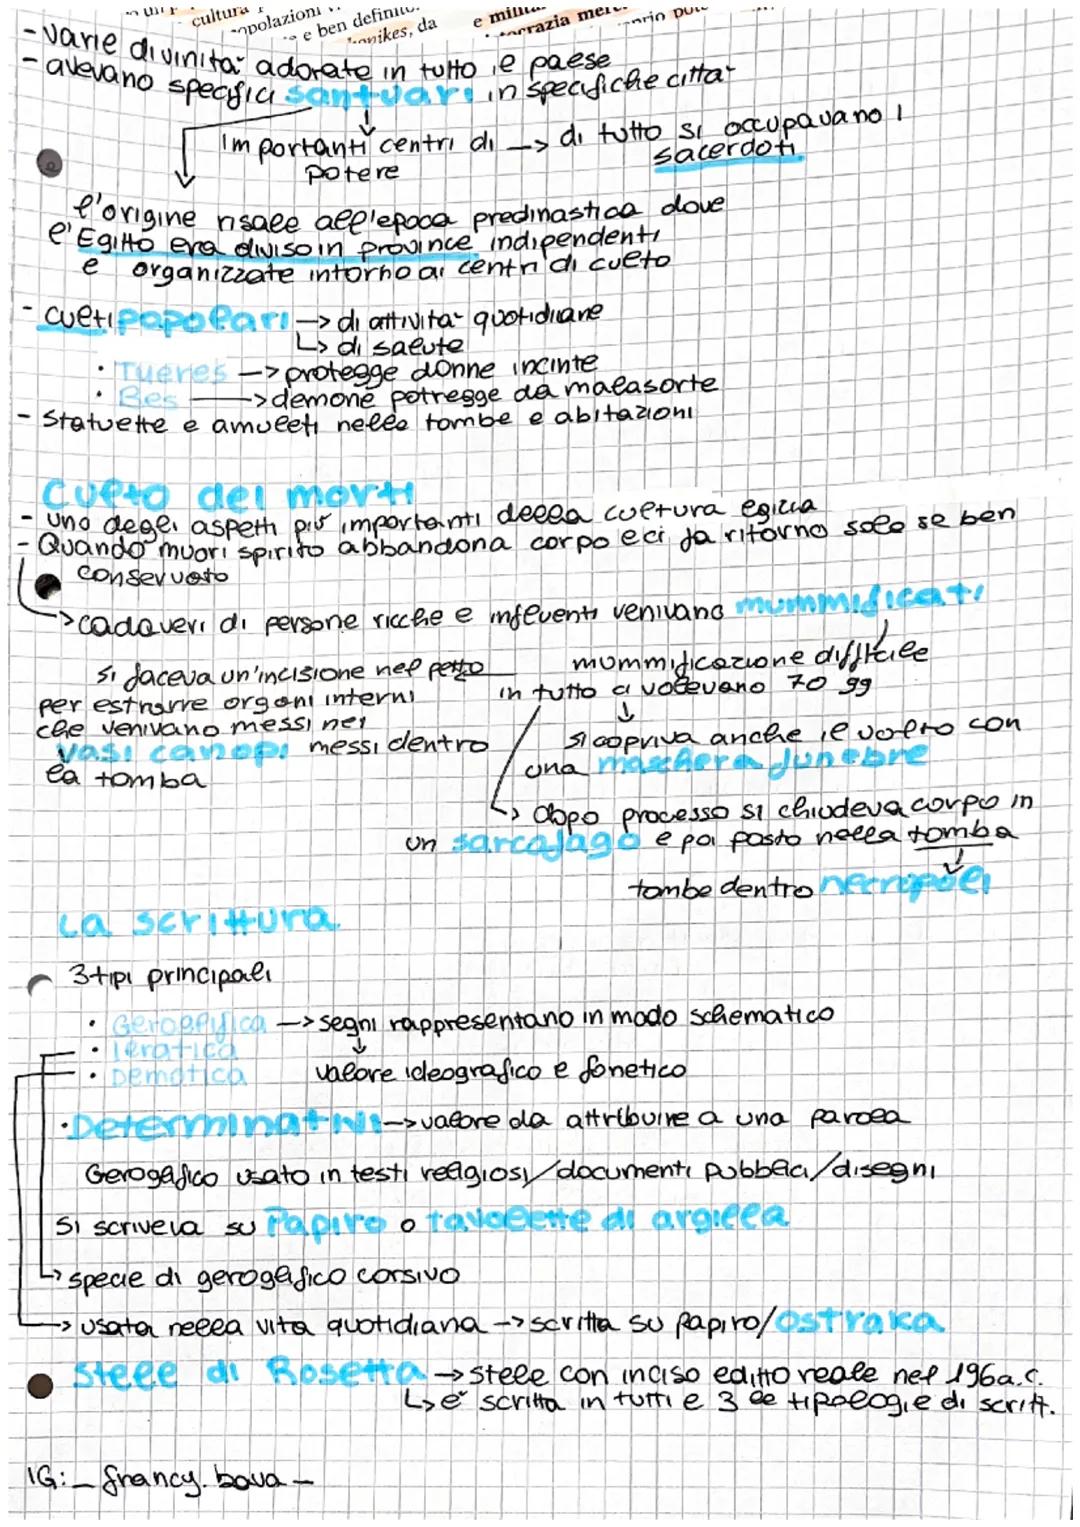 cultura
popolazioni
e ben definito
e milita
da
- varie divinità adorate in tutto il paese
- avevano specifici santuari in specifiche città
Importanti centri di potere -> di tutto si occupavano i sacerdoti
l'origine risale all'epoca predinastica dove
l'Egitto era diviso in province indipendenti
e organizzate intorno ai centri di culto
- culti popolari -> di attività quotidiane
↳ di salute
• Tueres -> protegge donne incinte
• Bes -> demone potregge da malasorte
- statuette e amuleti nelle tombe e abitazioni
Culto dei morti
- uno degli aspetti più importanti della cultura egizia
- Quando muori spirito abbandona corpo e ci fa ritorno solo se ben
conservato
-> cadaveri di persone ricche e influenti venivano mummificati
si faceva un'incisione nel petto
per estrarre organi interni
che venivano messi nei
vasi canopi messi dentro
la tomba
mummificazione difficile
in tutto ci volevano 70 gg
↓
si copriva anche il volto con
una maschera funebre
↳ dopo processo si chiudeva corpo in
un sarcofago e poi posto nella tomba
↓
tombe dentro necropoli
La scrittura
3 tipi principali
• Geroglifica -> segni rappresentano in modo schematico
• Ieratica
• Demotica
valore ideografico e fonetico
• Determinativi -> valore da attribuire a una parola
Geroglifico usato in testi religiosi/documenti pubblici/disegni
Si scriveva su Papiro o tavolette di argilla
↳ specie di geroglifico corsivo
-> usata nella vita quotidiana -> scritta su papiro/ostraka
Stele di Rosetta -> stele con inciso editto reale nel 196 a.C.
↳ è scritta in tutti e 3 le tipologie di scritt.
IG: _ francy.bova _